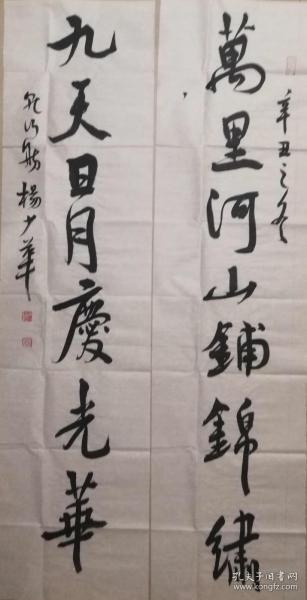 萬里河山鋪錦繡
辛丑之冬
九天日月慶光華
楊少華
孔夫子旧书网